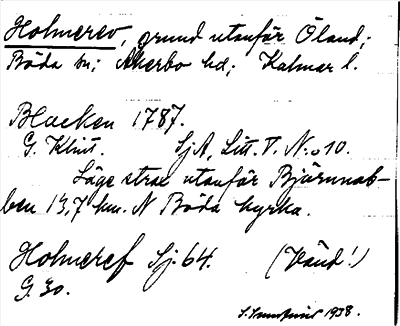 Holmerev, grund utanför Öland;
Böda sn; Åkerbo hd; Kalmar l.
Blacken 1787.
G. Klint. SjA, Litt. V. N:o 10.
Läge strax utanför Björnnab-
ben 13,7 km. N Böda kyrka.
Holmeref Sj. 64. (Vänd!)
G. 30.
1938.